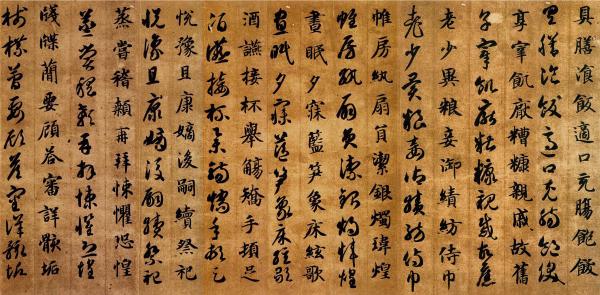 具膳飡飯適口充腸飽飫
具膳飡飯適口充腸飽飫
享宰飢厭糟糠親戚故舊
享宰飢厭糟糠親戚故舊
老少異粮妾御績紡侍巾
老少異粮妾御績紡侍巾
帷房紈扇員潔銀燭煒煌
帷房紈扇員潔銀燭煒煌
晝眠夕寐藍笋象床絃歌
晝眠夕寐藍笋象床絃歌
酒讌接杯舉觴矯手頓足
酒讌接杯舉觴矯手頓足
悅豫且康嫡後嗣續祭祀
悅豫且康嫡後嗣續祭祀
蒸嘗稽顙再拜悚懼恐惶
蒸嘗稽顙再拜悚懼恐惶
牋牒簡要顧荅審詳骸垢
牋牒簡要顧荅審詳骸垢